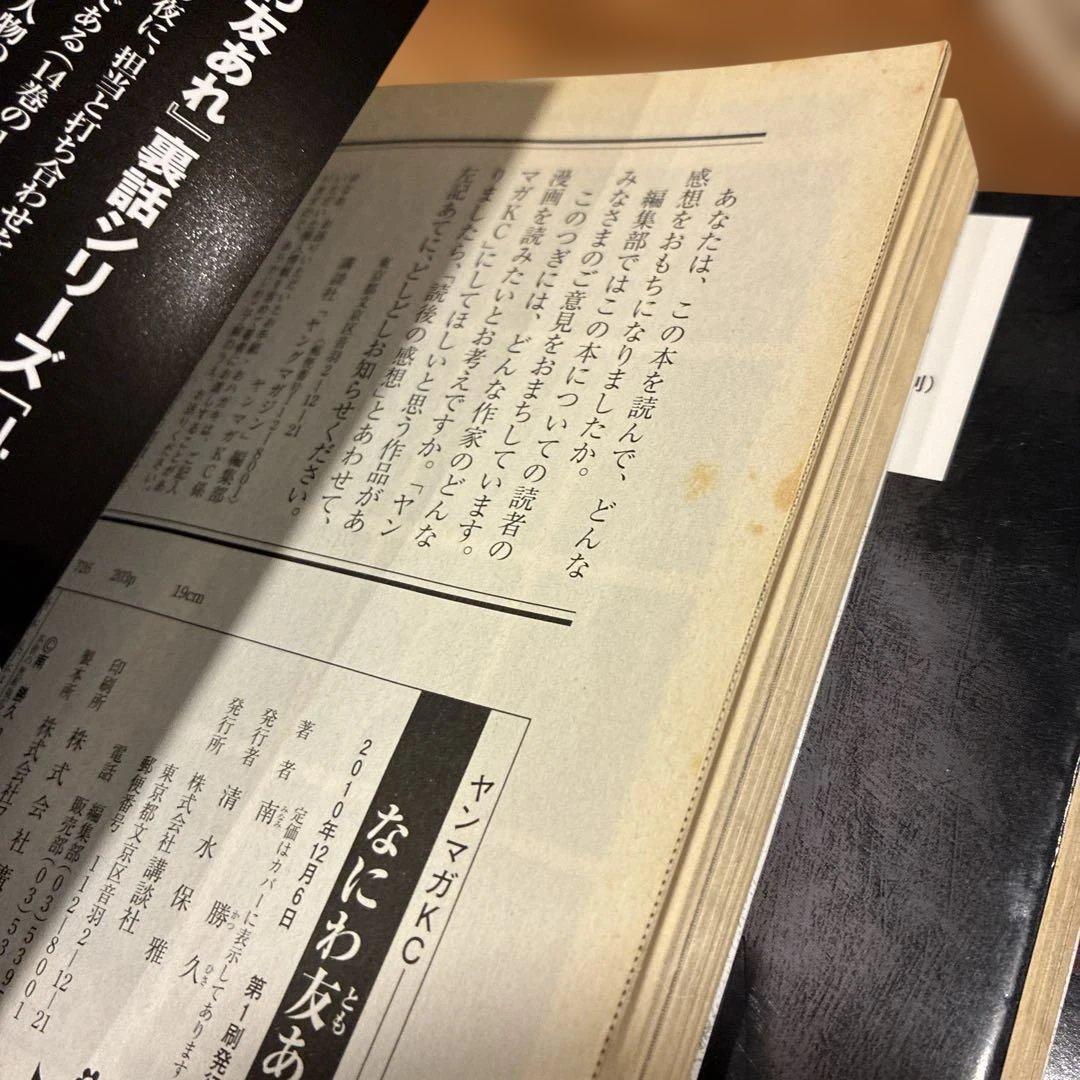 の友あれ』裏話シリーズ「
夜に、担当と打ち合わせを
である(14巻の
人物の
あなたは、この本を読んで、どんな
感想をおもちになりましたか。
編集部ではこの本についての読者の
みなさまのご意見をおまちしています。
このつぎには、どんな作家のどんな
漫画を読みたいとお考えですか。「ヤン
マガKC」にしてほしいと思う作品があ
りましたら、「読後の感想」とあわせて、
左記あてに、どしどしお知らせください。
東京都文京区音羽2-12-21
(郵便番号112-8001)
講談社「ヤングマガジン」編集部
726 203p 19cm
ヤンマガKC
なにわ友あ
とも
2010年12月6日 第1刷発行
定価はカバーに表示してあります
著者 南 勝久
みなみ かつ ひさ
発行者 清水保雅
発行所 株式会社 講談社
東京都文京区音羽2-12-21
郵便番号 112-8001
電話 編集部(03)539
販売部(03)539
印刷所 株式会社廣
製本所 株式会社
©南 勝久
別)